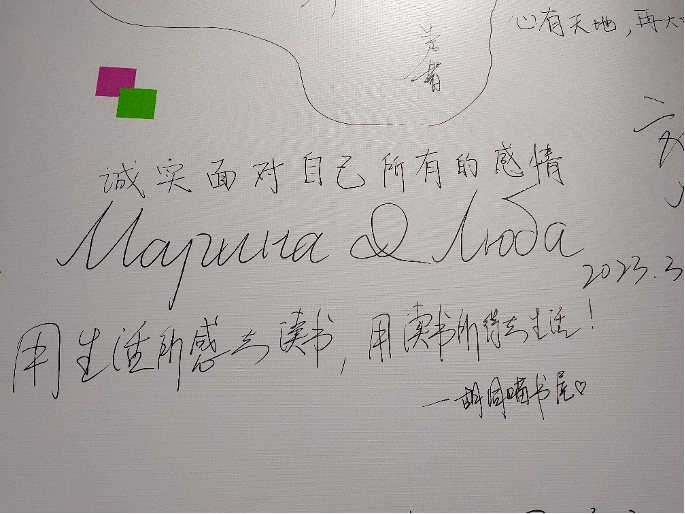 心有天地，再大
诚实面对自己所有的感情
Марина & Люба
2023.3
用生活所感去读书，用读书所得去生活！